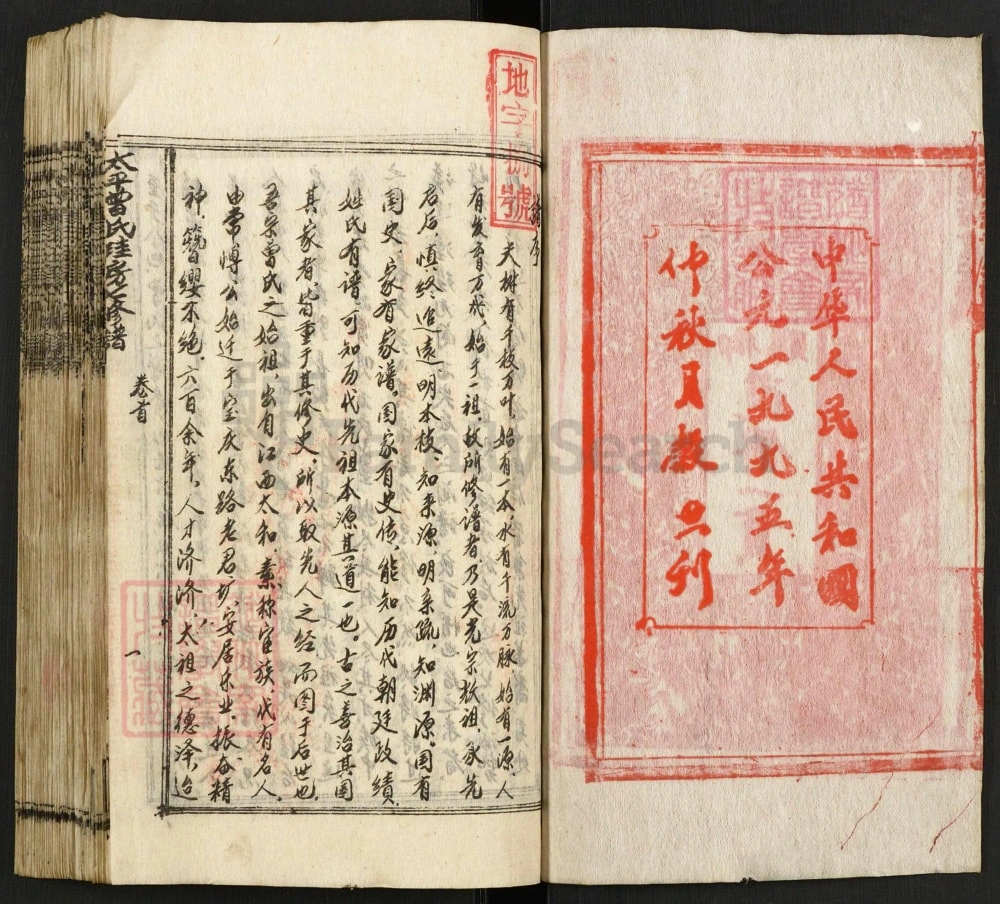 中华人民共和國
公元一九九五年
仲秋月穀旦刊
地字捌號
序
夫樹有千枝万叶，始有一本，水有千流万脉，始有一源，人
有发育万代，始于一祖，故所修谱者，乃是光宗敬祖，承先
启后，慎终追远，明本枝，知来源，明亲疏，知渊源。国有
国史，家有家谱。国家有史传，能知历代朝廷政績，
姓氏有谱，可知历代先祖本源其道一也。古之善治其国
其家者，皆重于其修史，所以取先人之经而图于后世也，
吾宗曾氏之始祖，出自江西太和，素称宦族，代有名人，
由常博公始迁于宝庆东路老君圹，安居乐业，振奋精
神，簪纓不绝，六百余年，人才济济，太祖之德泽，迨
太平曾氏 房 修谱
卷首
一
FamilySearch